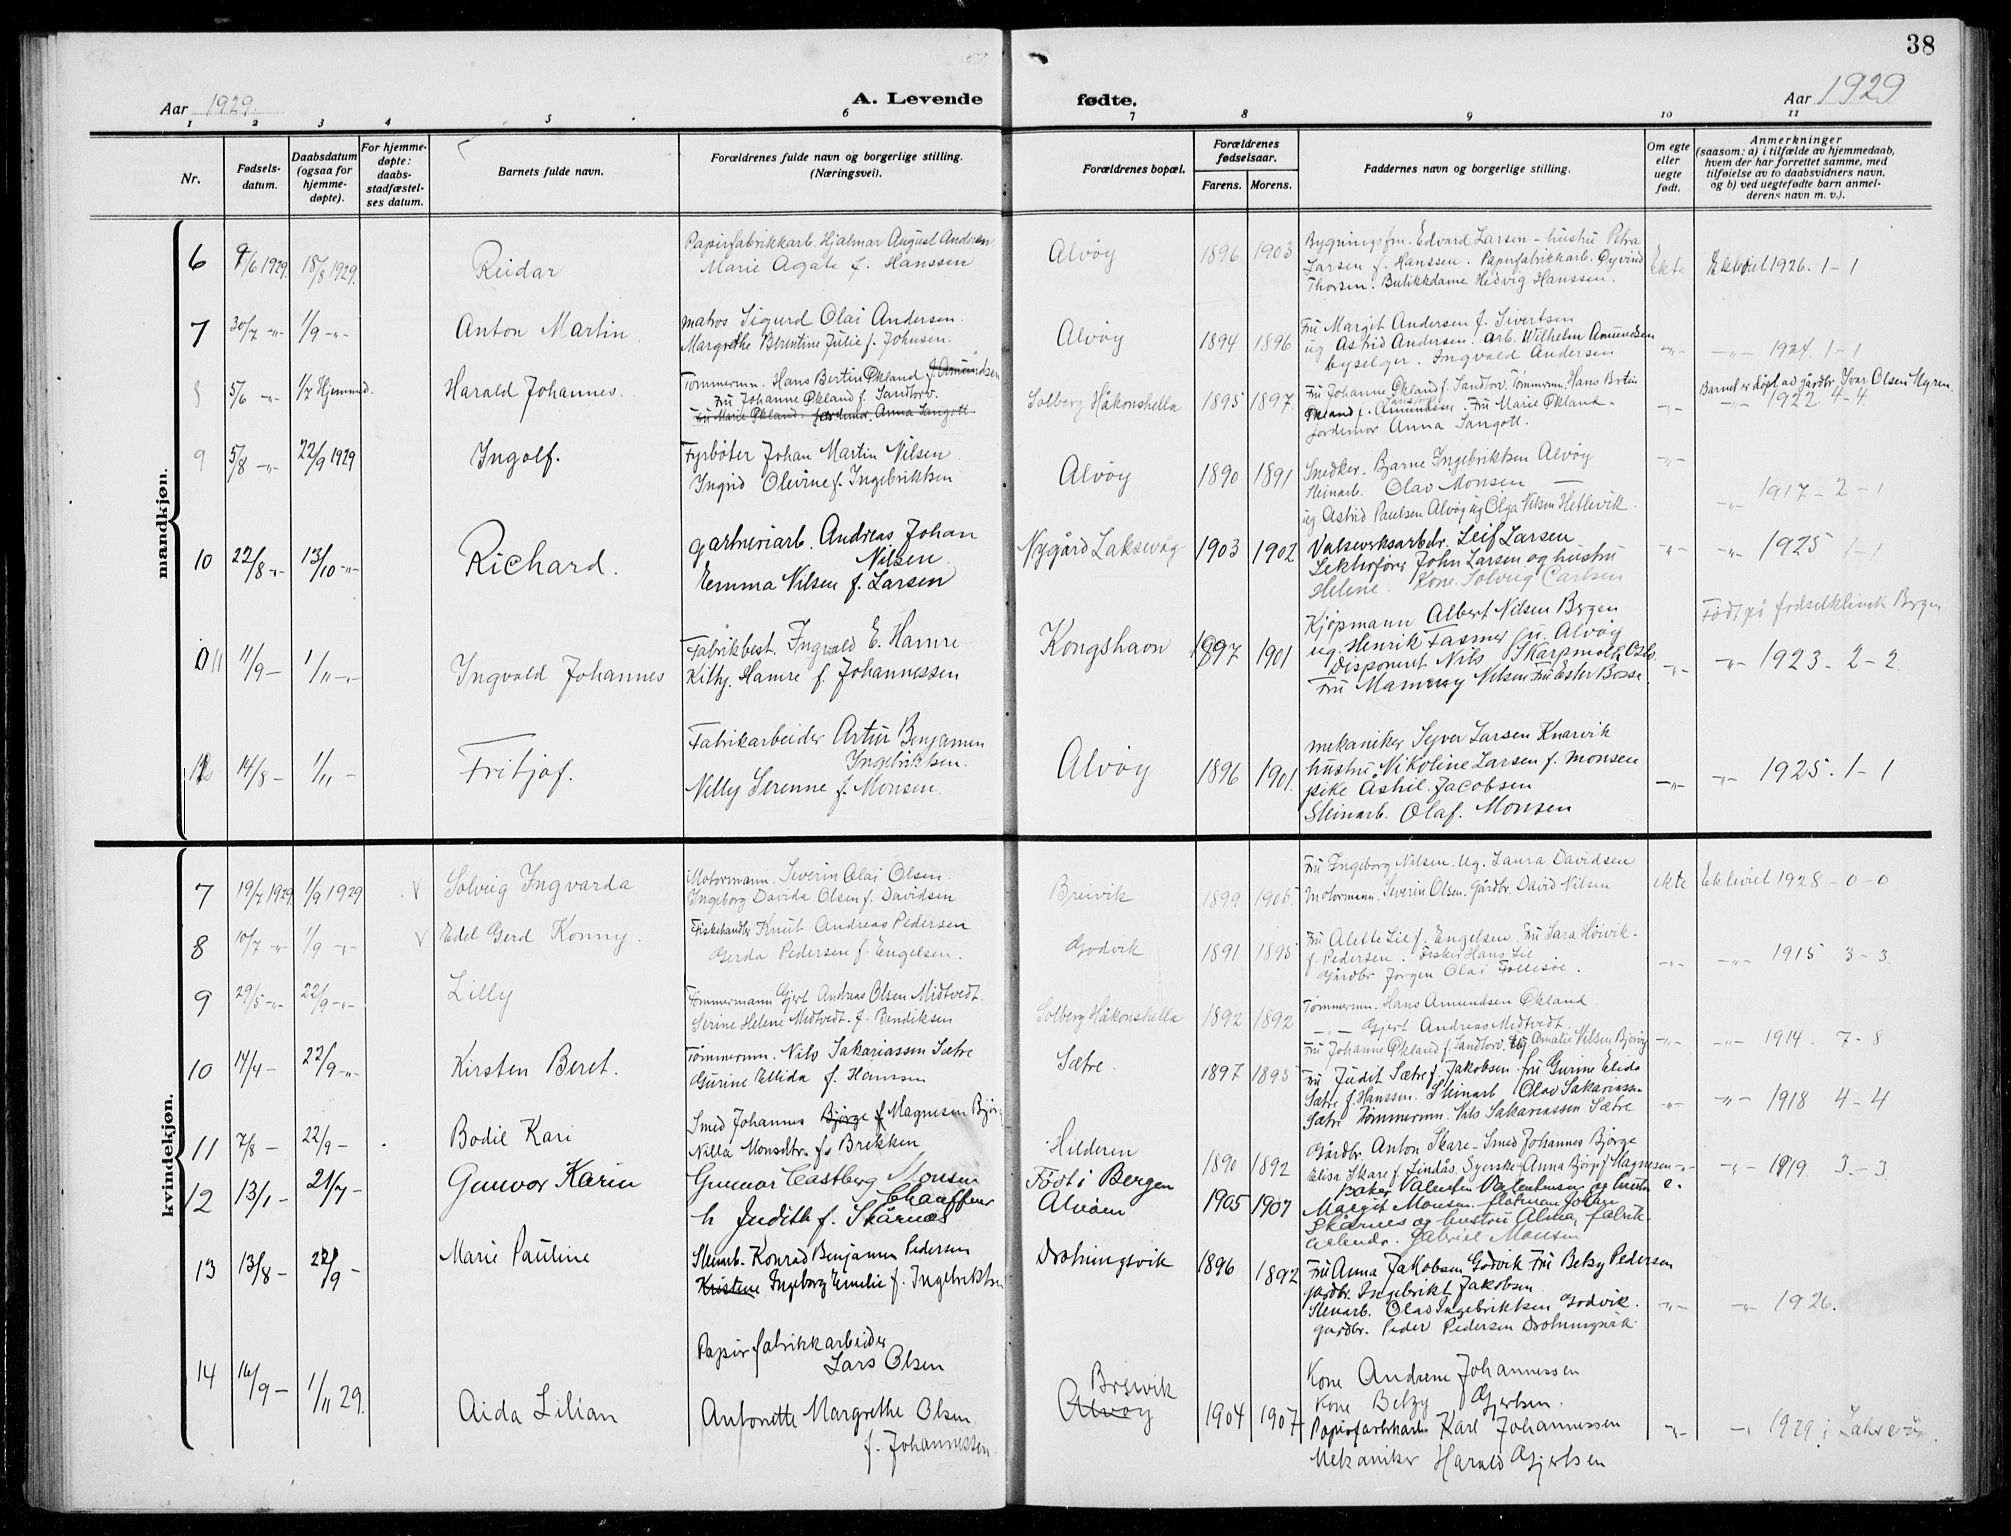 38
Aar 1929.
A. Levende fødte.
Aar 1929
1 2 3 4 5 6 7 8 9 10 11
Nr.
Fødsels-
datum.
Daabsdatum
(ogsaa for
hjemme-
døpte).
For hjemme-
døpte:
daabs-
stadfæstel-
ses datum.
Barnets fulde navn.
Forældrenes fulde navn og borgerlige stilling.
(Næringsvei).
Forældrenes bopæl.
Forældrenes
fødselsaar.
Farens. Morens.
Faddernes navn og borgerlige stilling.
Om egte
eller
uegte
født.
Anmerkninger
(saasom: a) i tilfælde av hjemmedaab,
hvem der har forrettet samme, med
tilføielse av to daabsvidners navn,
og b) ved uegtefødte barn anmel-
derens navn m. v.).
mandkjøn.
6 9/6 1929. 18/8 1929. Reidar
Papirfabrikkarb. Hjalmar August Andersen
Marie Agate f. Hanssen
Alvøy 1896 1903
Bygningsfm. Edvard Larsen - hustru Petra
Larsen f. Hanssen. Papirfabrikkarb. Øyvind
Thorsen. Butikkdame Hedvig Hanssen.
Ekte Ekteviet 1926. 1-1
7 30/7 -"- 1/9 -"- Anton Martin
matros Sigurd Olai Andersen.
Margrethe Berntine Julie f. Johnsen.
Alvøy 1894 1896
Fru Margit Andersen f. Sivertsen
ug Astrid Andersen. arb. Wilhelm Amundsen
byselger. Ingvald Andersen
-"- -"- 1924. 1-1
8 5/6 -"- 1/7 Hjemmed. Harald Johannes.
Tømmermn. Hans Bertin Økland f. Amundsen
Fru Johanne Økland f. Sandtorv.
Fru Marie Økland. Jordemor. Anna Sangolt.
Solberg Håkonshella 1895 1897.
Fru Johanne Økland f. Sandtorv. Tømmermn. Hans Bertin
Økland f. Amundsen. Fru Marie Økland -
Jordemor Anna Sangolt.
-"- Barnet er døpt av gårdbr. Ivar Olsen Myren.
-"- 1922 4-4
9 5/8 -"- 22/9 1929 Ingolf.
Fyrbøter Johan Martin Nilsen
Ingrid Olevine f. Ingebriktsen
Alvøy 1890 1891
Snedker. Bjarne Ingebriktsen Alvøy
Steinarb. Olav Monsen —
ug Astrid Paulsen Alvøy ug Olga Nilsen Hetlevik.
-"- -"- 1917 - 2 - 1
10 22/8 -"- 13/10 -"- Richard.
gartneriarb. Andreas Johan
Nilsen.
Emma Nilsen f. Larsen
Nygård Laksevåg 1903 1902
Valseverksarbdr. Leif Larsen
Lektrofører John Larsen og hustru
Helene. Kone. Solveig Carlsen
-"- -"- 1925 1-1
11 11/9 - 1/11 -"- Ingvald Johannes
Fabrikbest. Ingvald E. Hamre
Kitty. Hamre f. Johannessen
Kongshavn 1897 1901
Kjøpmann Albert Nilsen Bergen
ug. Henrik Fasmer fu. Alvøy
Disponent Nils Skarpmoth Oslo.
Fru Mammy Nilsen Fru Ester Bosse.
Født på fødselklinik Bergen
-"- -"- 1923 - 2 - 2.
12 14/8 - 1/11 - Fritjof.
Fabrikarbeider Artur Benjamen
Ingebriktsen.
Nelly Serenne f. Monsen.
Alvøy 1896 1901.
mekaniker Syver Larsen Knarvik
hustru Nikoline Larsen f. Monsen
pike Åshil. Jacobsen
Steinarb. Olaf. Monsen
-"- -"- 1925. 1-1
kvindekjøn.
7 19/7 1929. 1/9 1929 V Solveig Ingvarda
Motormann. Severin Olai Olsen.
Ingeborg Davida Olsen f. Davidsen
Breivik 1899 1905.
Fru Ingeborg Nilsen. Ug. Laura Davidsen
Motormann. Severin Olsen. Gårdbr. David Nilsen
ekte Ekteviet 1928 - 0 - 0
8 10/7 -"- 1/9 -"- V Edel Gerd Konny.
Fiskehandler Knut Andreas Pedersen
Gerda Pedersen f. Engelsen.
Godvik 1891 1895
Fru Alette Lie f. Engelsen. Fru Sara Høivik -
f. Pedersen. Fisker Hans Lie
Gårdbr Jørgen Olai Follesøe.
-"- -"- 1915 3-3
9 29/5 -"- 22/9 -"- Lilly
Tømmermann Gjert Andreas Olsen Midtvedt.
Serine Helene Midtvedt. f. Bendiksen
Solberg Håkonshella 1892 1892
Tømmermn. Hans Amundsen Økland.
-"- Gjert Andreas Midtvedt
Fru Johanne Økland f. Sandtorv. Ug Amalie Nilsen Bjorøy
-"- -"- 1914. 7-8
10 14/4 - 22/9 -"- Kirsten Beret.
Tømmermn. Nils Sakariassen Sætre
Gurine Ellida f. Hanssen
Sætre. 1897 1895
Fru Judit Sætre f. Jakobsen. fru Gurine Elida
Sætre f. Hanssen. Steinarb Olav Sakariassen
Sætre Tømmermn. Nils Sakariassen Sætre
-"- -"- 1918 4-4
11 7/8 - 22/9 - Bodil Kari
Smed Johannes Bjørge f Magnesen Bjør
Nilla Monsdtr. f. Brekken
Hilderen 1890 1892
Gårdbr. Anton Skare - Smed Johannes Bjørge
Elisa Skare f. Lindås. Syerske Anna Bjørge f. Magnesen
-"- -"- 1919. 3-3
12 13/1 - 21/7 - Gunvor Karin
Gunnar Castberg Monsen
Chauffeur
h Judith f. Skårnes
Født i Bergen
Alvøen 1905 1907
Baker Valentin Valentinsen og hustru
Margit Monsen. Johan
Skårnes og hustru Alma, fabrik-
Gabriel Monsen
e.
13 13/8 - 22/9 - Marie Pauline
Steinarb. Konrad Benjamin Pedersen
Kristine Ingeborg Emelie f. Ingebriktsen
Drotningsvik 1896 1892
Fru Anna Jakobsen Godvik Fru Betsy Pedersen
gårdbr. Ingebrikt Jakobsen
Stenarb. Olav Ingebriktsen Godvik.
gårdbr. Peder Pedersen Drotningsvik
-"- -"- 1926.
14 16/9 - 1/11 29. Aida Lilian
Papirfabrikkarbeider
Lars Olsen
Antonette Margrethe Olsen
f. Johannessen.
Breivik
Alvøy 1904 1907
Kone Andrine Johannessen
Kone Betzy Gjertsen.
Papirfabrkarb. Karl Johannessen
Mekaniker Harald Gjertsen
-"- -"- 1929 i Laksevåg.